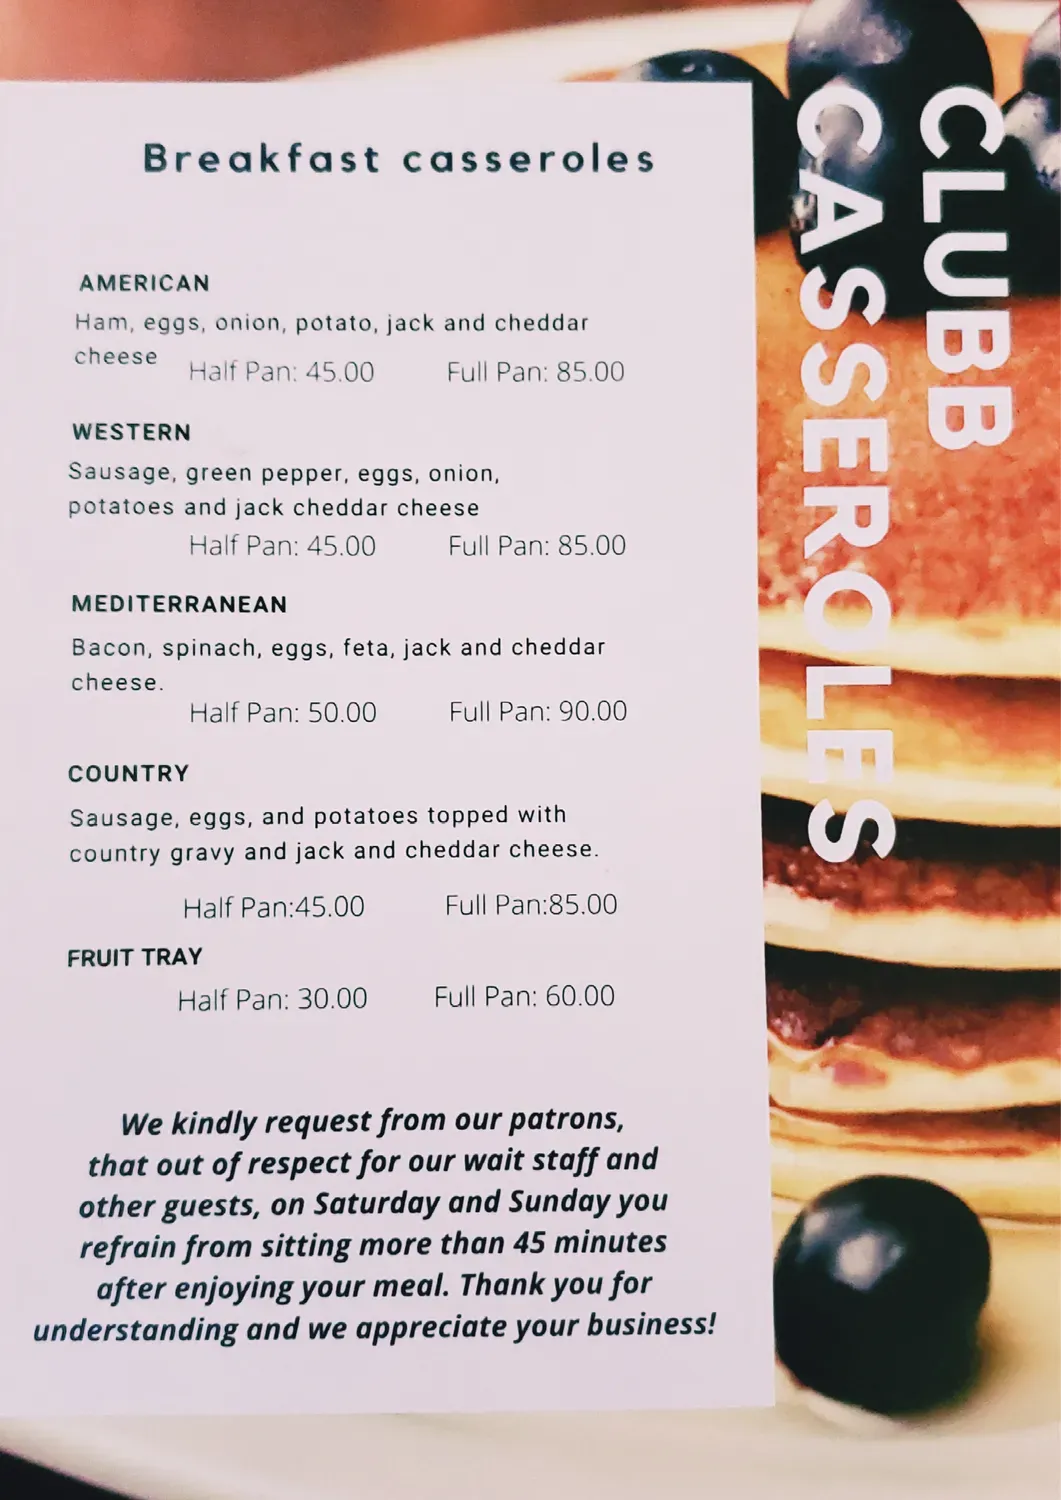 Breakfast casseroles
AMERICAN
Ham, eggs, onion, potato, jack and cheddar
cheese
Half Pan: 45.00 Full Pan: 85.00
WESTERN
Sausage, green pepper, eggs, onion,
potatoes and jack cheddar cheese
Half Pan: 45.00 Full Pan: 85.00
MEDITERRANEAN
Bacon, spinach, eggs, feta, jack and cheddar
cheese.
Half Pan: 50.00 Full Pan: 90.00
COUNTRY
Sausage, eggs, and potatoes topped with
country gravy and jack and cheddar cheese.
Half Pan:45.00 Full Pan:85.00
FRUIT TRAY
Half Pan: 30.00 Full Pan: 60.00
We kindly request from our patrons,
that out of respect for our wait staff and
other guests, on Saturday and Sunday you
refrain from sitting more than 45 minutes
after enjoying your meal. Thank you for
understanding and we appreciate your business!
CLUBB
CASSEROLES